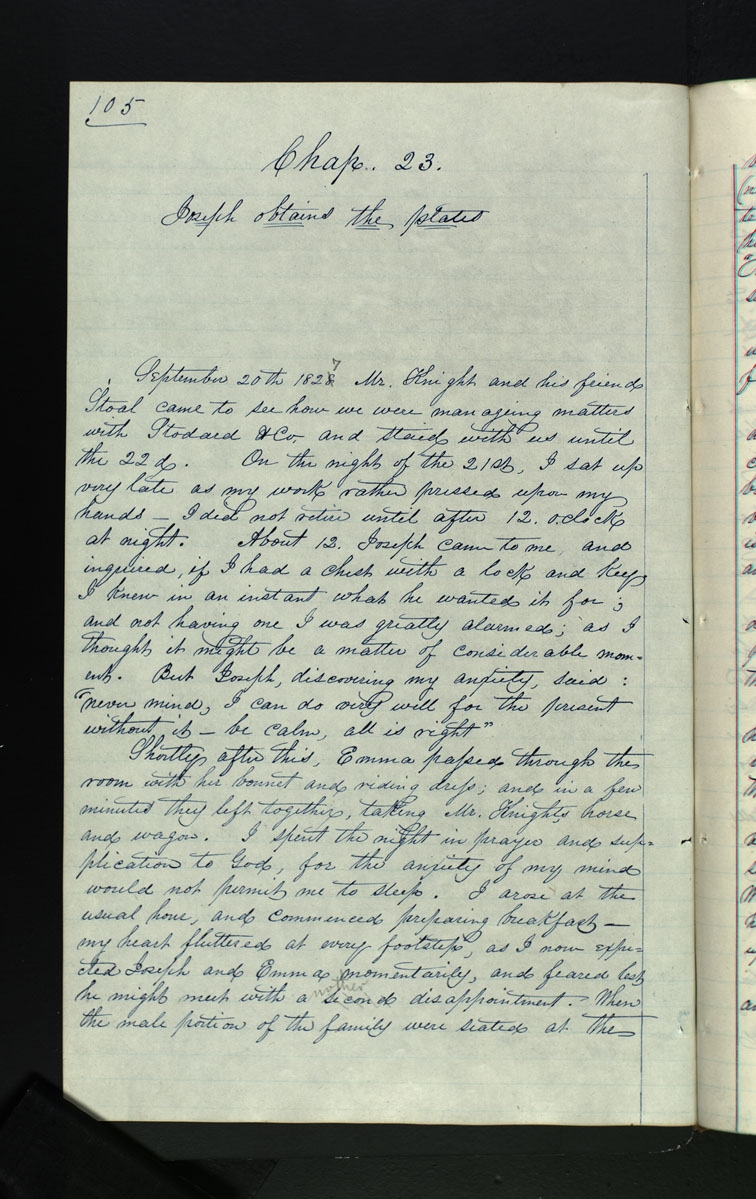 105
Chap.. 23.
Joseph obtains the plates
7
September 20th 1828 Mr. Knight and his friend
Stoal came to see how we were manageing matters
with Stodard & Co. and staid with us until
the 22d. On the night of the 21st, I sat up
very late as my work rather pressed upon my
hands — I did not retire until after 12. o.clock
at night. About 12. Joseph came to me, and
inquired, if I had a chest with a lock and key,
I knew in an instant what he wanted it for;
and not having one I was greatly alarmed; as I
thought it might be a matter of considerable mom-
ent. But Joseph, discovering my anxiety, said:
"never mind, I can do very well for the present
without it — be calm, all is right"
Shortly after this, Emma passed through the
room with her bonnet and riding dress; and in a few
minutes they left together, taking Mr. Knights horse
and wagon. I spent the night in prayer and sup=
plication to God, for the anxiety of my mind
would not permit me to sleep. I arose at the
usual hour, and commenced preparing breakfast —
my heart fluttered at every footstep, as I now expe=
cted Joseph and Emma momentarily, and feared lest
nother
he might meet with a second disappointment. When
the male portion of the family were seated at the